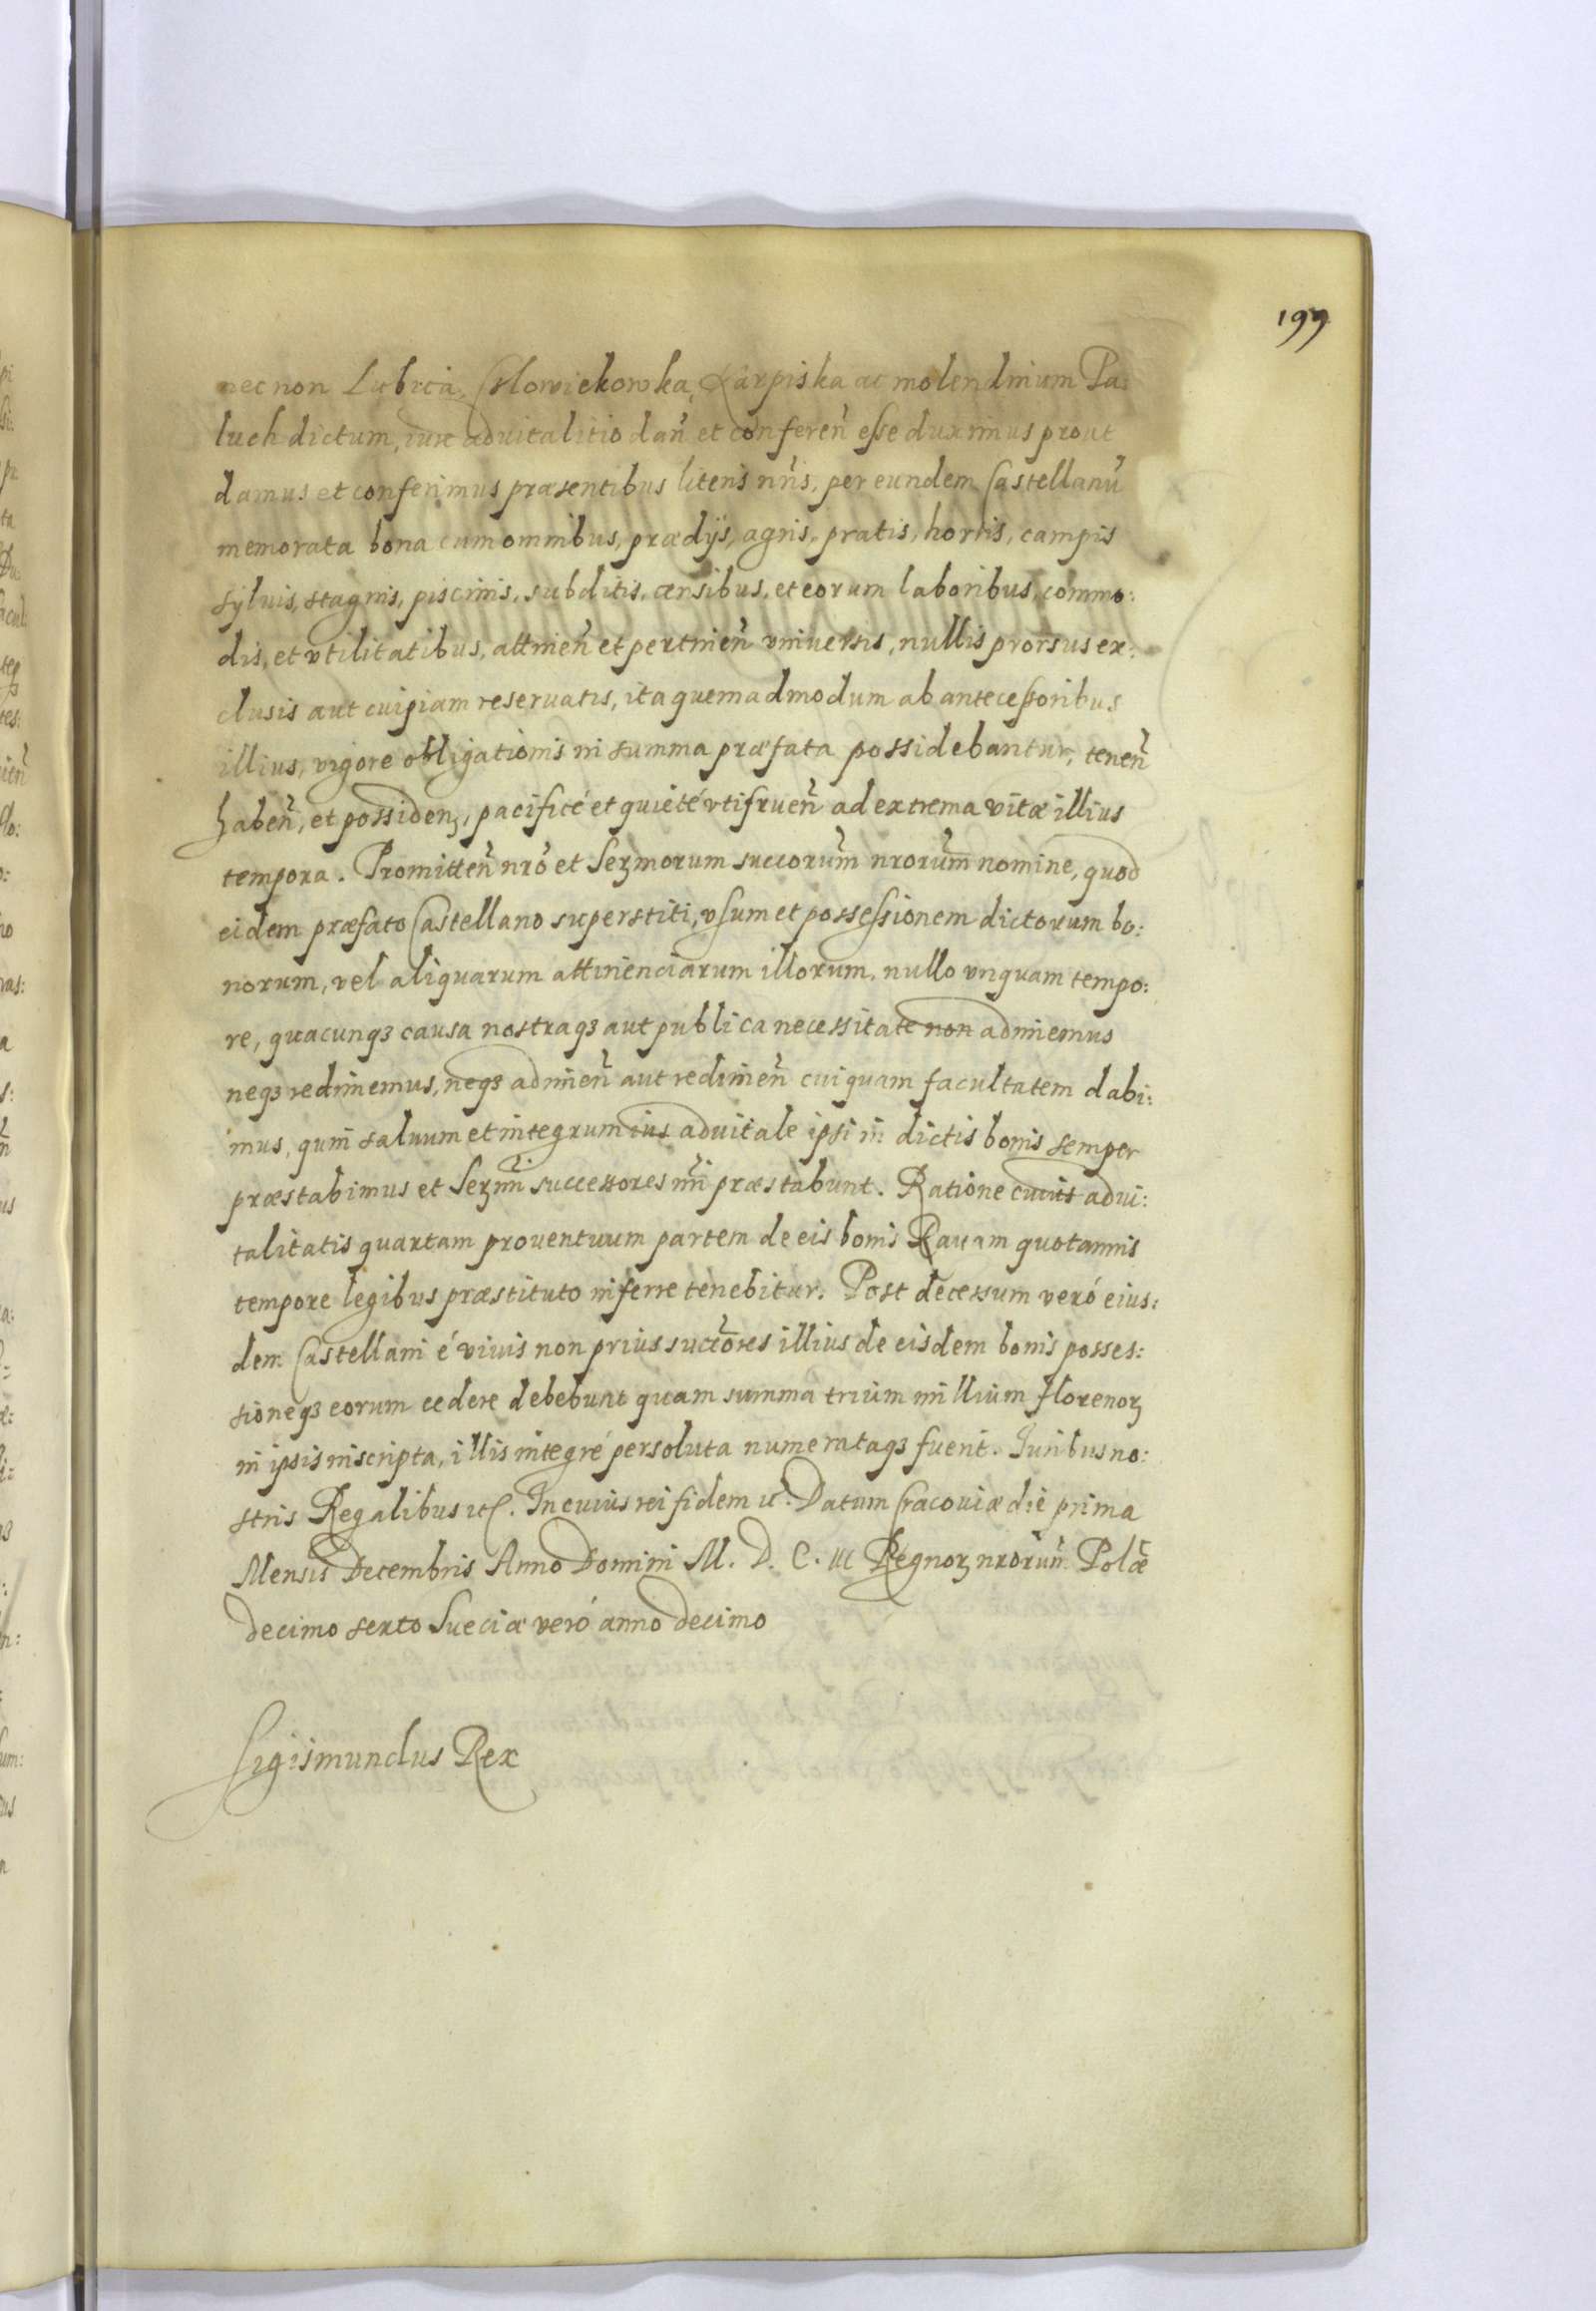 199
nec non Lubica, Człowiekowka, Karpiska ac molendinum Pa:
luch dictum, iure aduitalitio dan̄ et conferen̄ esse duximus prout
damus et conferimus præsentibus literis nr̄is, per eundem Castellanū
memorata bona cum omnibus, prædijs, agris, pratis, hortis, campis
syluis, stagnis, piscinis, subditis, censibus, et eorum laboribus, commo:
dis, et vtilitatibus, attinen̄ et pertinen̄ vniuersis, nullis prorsus ex:
clusis aut cuipiam reseruatis, ita quemadmodum ab antecessoribus
illius, vigore obligationis in summa præfata possidebantur, tenen̄
haben̄, et possidenꝫ, pacificé et quieté vtifruen̄ ad extrema vitæ illius
tempora. Promitten̄ nr̄o et Serꝫmorum succorum̄ nrorum̄ nomine, quod
eidem præfato Castellano superstiti, vsum et possessionem dictorum bo:
norum, vel aliquarum attinenciarum illorum, nullo vnquam tempo:
re, quacunqꝫ causa nostraqꝫ aut publica necessitate non adimemus
neqꝫ redimemus, neqꝫ adimen̄ aut redimen̄ cuiquam facultatem dabi:
mus, quin saluum et integrum ius aduitale ipsi in dictis bonis semper
præstabimus et Serꝫmi successores nr̄i præstabunt. Ratione cuius adui:
talitatis quartam prouentuum partem de eis bonis Rauam quotannis
tempore legibus præstituto inferre tenebitur. Post decessum veró eius:
dem Castellani é viuis non prius succōres illius de eisdem bonis posses:
sioneqꝫ eorum cedere debebunt quam summa trium millium florenoꝝ
in ipsis inscripta, illis integré persoluta numerataqꝫ fuerit. Juribus no:
stris Regalibus etc. In cuius rei fidem etc. Datum Cracouiæ die prima
Mensis Decembris Anno Domini M. D. C. III Regnoꝝ nrorum̄ Polǣ
decimo sexto Sueciæ veró anno decimo
Sigismundus Rex